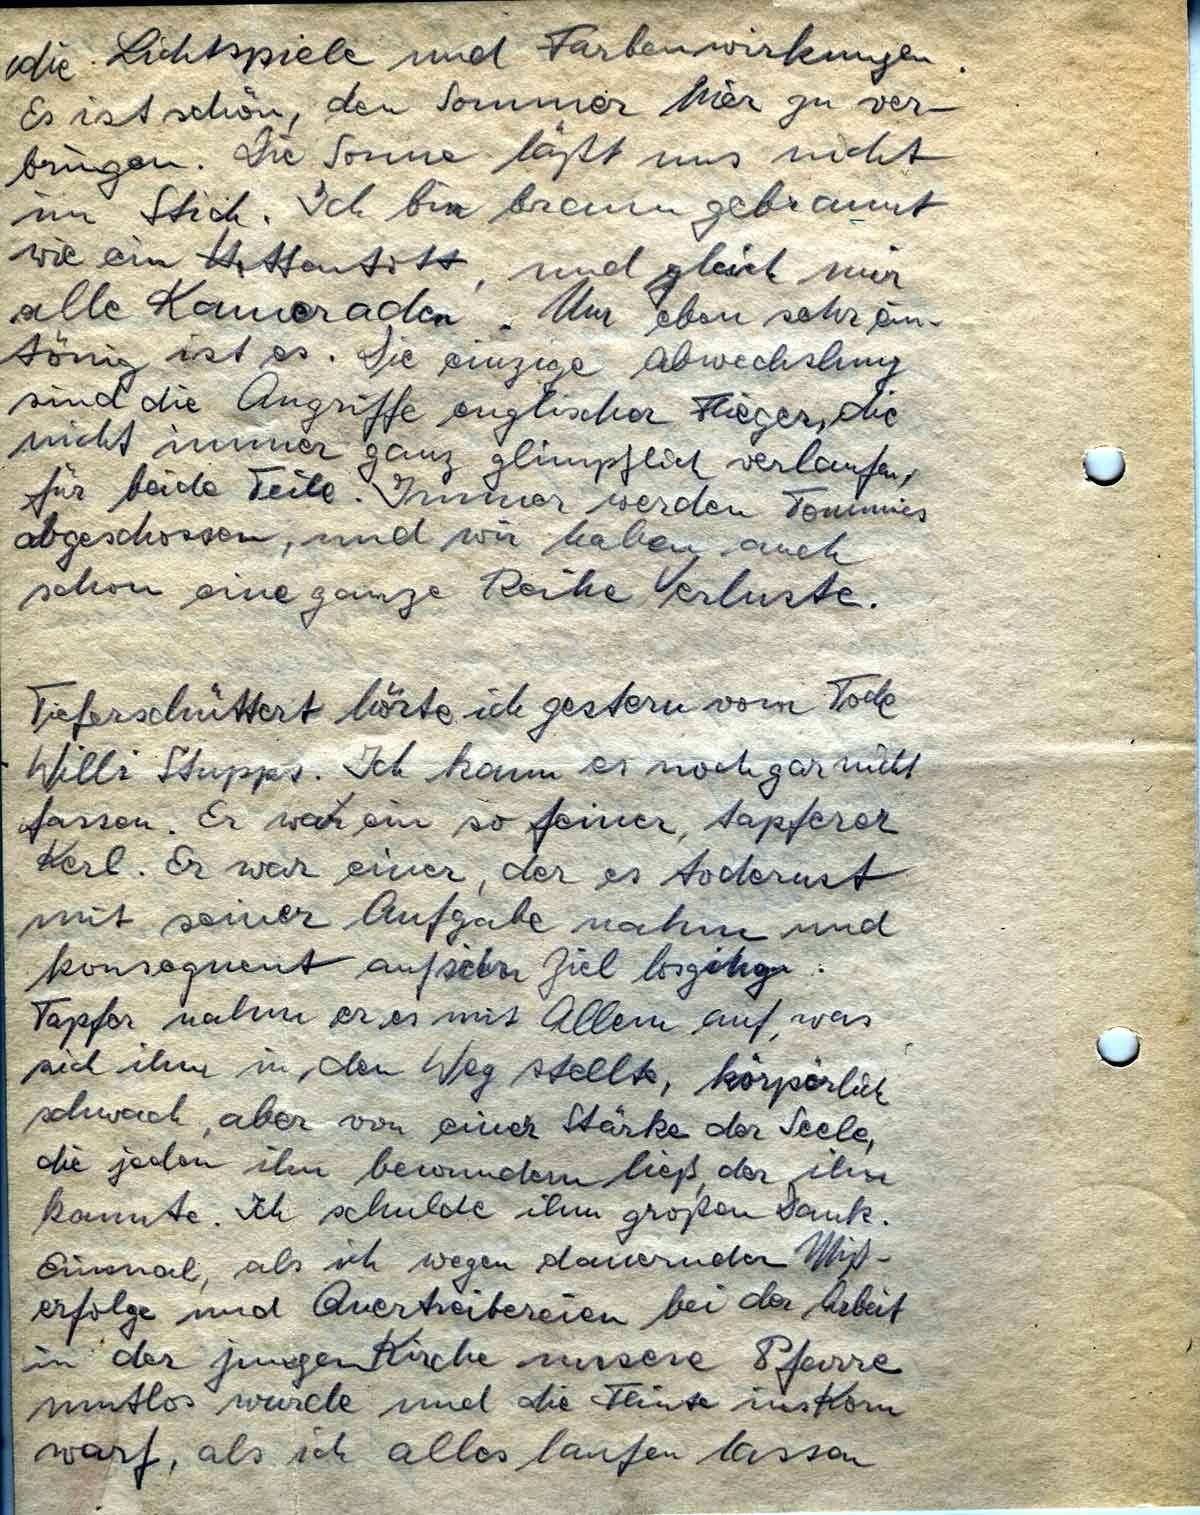 die Lichtspiele und Farbenwirkungen.
Es ist schön, den Sommer hier zu ver-
bringen. Die Sonne läßt uns nicht
im Stich. Ich bin braun gebrannt
wie ein Hottentott, und gleich mir
alle Kameraden. Nur eben sehr ein-
tönig ist es. Die einzige Abwechslung
sind die Angriffe englischer Flieger, die
nicht immer ganz glimpflich verlaufen,
für beide Teile. Immer werden Tommies
abgeschossen, und wir haben auch
schon eine ganze Reihe Verluste.
Tieferschüttert hörte ich gestern vom Tode
Willi Stupps. Ich kann es noch gar nicht
fassen. Er war ein so feiner, tapferer
Kerl. Er war einer, der es todernst
mit seiner Aufgabe nahm und
konsequent auf sein Ziel losging.
Tapfer nahm er es mit Allem auf, was
sich ihm in den Weg stellte, körperlich
schwach, aber von einer Stärke der Seele,
die jeden ihn bewundern ließ, der ihn
kannte. Ich schulde ihm großen Dank.
Einmal, als ich wegen dauernder Miß-
erfolge und Quertreibereien bei der Arbeit
in der jungen Kirche unsere Pfarre
mutlos wurde und die Flinte ins Korn
warf, als ich alles laufen lassen